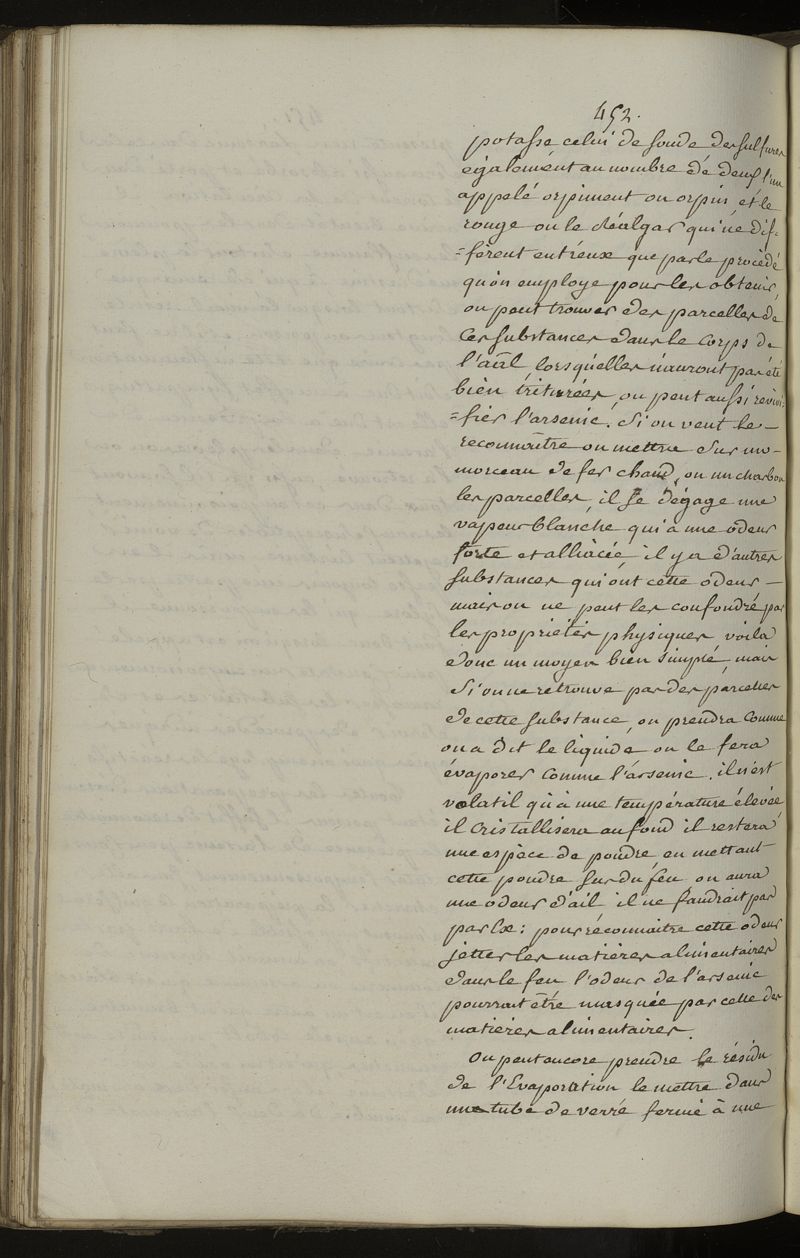 452.
potasse celui de soude des sulfures
également au nombre de deux l'un
appelé orpiment ou orpin et le
rouge ou le réalgar qui ne dif-
=fèrent entr'eux que par le procédé
qu'on employe pour les obtenir,
on peut trouver des parcelles de
ces substances dans le corps de
l'aal lorsqu'elles n'auront pas été
bien triturées, on peut aussi revivi-
=fier l'arsenic. Si on veut le —
reconnaître on mettra sur mo-
morceau de fer chaud, ou un charbon
les parcelles, il se dégage une
vapeur blanche qui a une odeur
forte et alliacée il y a d'autres
substances qui ont cette odeur —
mais on ne peut les confondre par
les propriétés physiques voila
donc un moyen bien simple, mais
Si on ne retrouve pas des parcelles
de cette substance, on prendra comme
on a dit le liquide on le fera
évaporer comme l'arsenic. il n'est
volatil qu'à une température élevée
il cristallisera au fond il restera
une espèce de poudre en mettant
cette poudre sur du feu on aura
une odeur d'ail il ne faudrait pas
par Ex: pour réconnaitre cette odeur
jetter les matières alimentaires
dans le feu l'odeur de l'arsenic
pourrait être masquée par celle des
matières alimentaires.
On peut encore prendre le résidu
de l'Evaporation le mettre dans
un tube de verre fermé à une